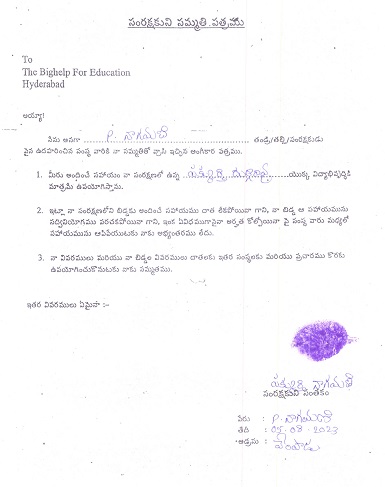 సంరక్షకుని సమ్మతి పత్రము
To
The Bighelp For Education
Hyderabad
అయ్యా!
నేను అనగా P. నాగమణి తండ్రి/తల్లి/సంరక్షకుడు
పైన ఉదహరించిన సంస్థ వారికి నా సమ్మతితో వ్రాసి ఇచ్చిన అంగీకార పత్రము.
1. మీరు అందించే సహాయం నా సంరక్షణలో ఉన్న యొక్క విద్యాభివృద్ధికి
మాత్రమే ఉపయోగిస్తాను.
2. ఇట్లా నా సంరక్షణలోని బిడ్డకు అందించే సహాయము దాత శీకపోయినా గాని, నా బిడ్డ ఆ సహాయమును
సద్వినియోగము పరచకపోయినా గాని, ఇంక ఏవిధముగానైనా అర్హత కోల్పోయినా పై సంస్థ వారు మధ్యలో
సహాయమును ఆపివేయుటకు నాకు అభ్యంతరము లేదు.
3. నా వివరములు మరియు నా బిడ్డల వివరములు దాతలకు ఇతర సంస్థలకు మరియు ప్రచారము కొరకు
ఉపయోగించుకొనుటకు నాకు సమ్మతము.
ఇతర వివరములు ఏమైనా :-
నాగమణి
సంరక్షకుని సంతకం
పేరు : P. నాగమణి
తేది : 05-08-2023
అడ్రసు : వేంపాడు